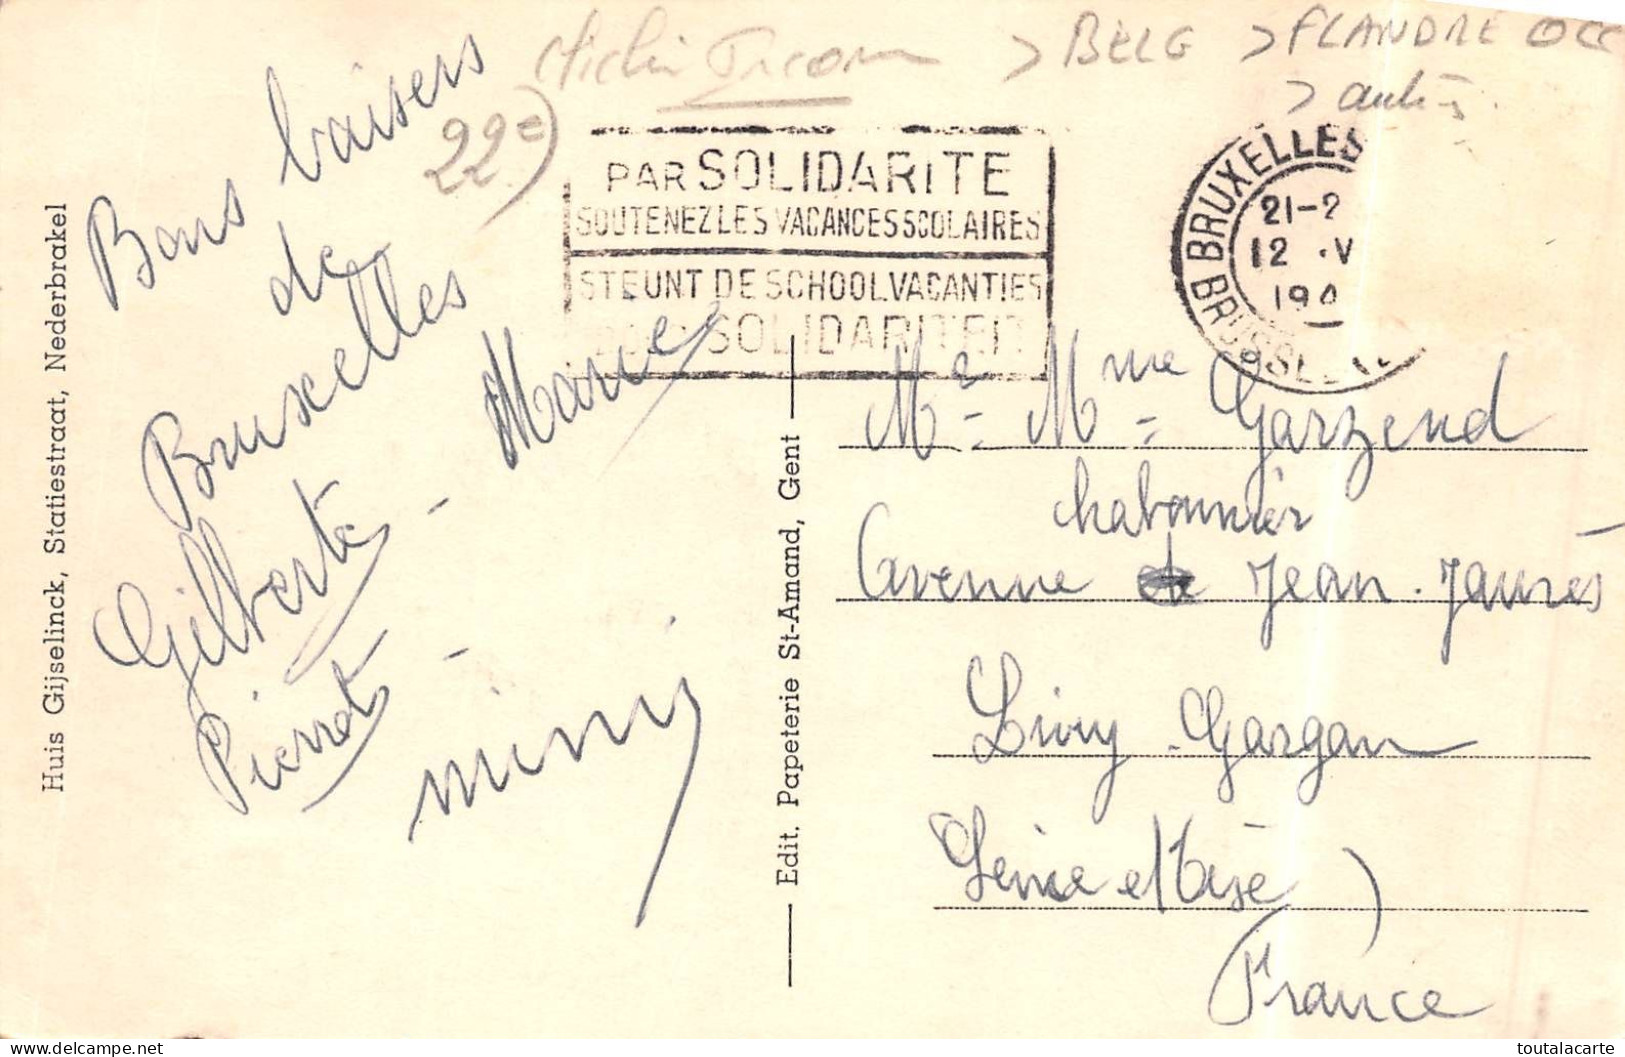 > BELG > FLANDRE OCC
>
22€)
PAR SOLIDARITE
SOUTENEZ LES VACANCES SCOLAIRES
STEUNT DE SCHOOLVACANTIES
SOLIDARITEIT
BRUXELLES
21-2
12 .V
194
BRUSSEL
Huis Gijselinck, Statiestraat, Nederbrakel
Bons baisers
de
Bruxelles
Gilberte - Marcel
Pierrot - Mimi
Edit. Papeterie St-Amand, Gent
Mr= Mme= Garzend
Avenue Jean-Jaurès
Livry-Gargan
Seine et Oise)
France
toutalacarte